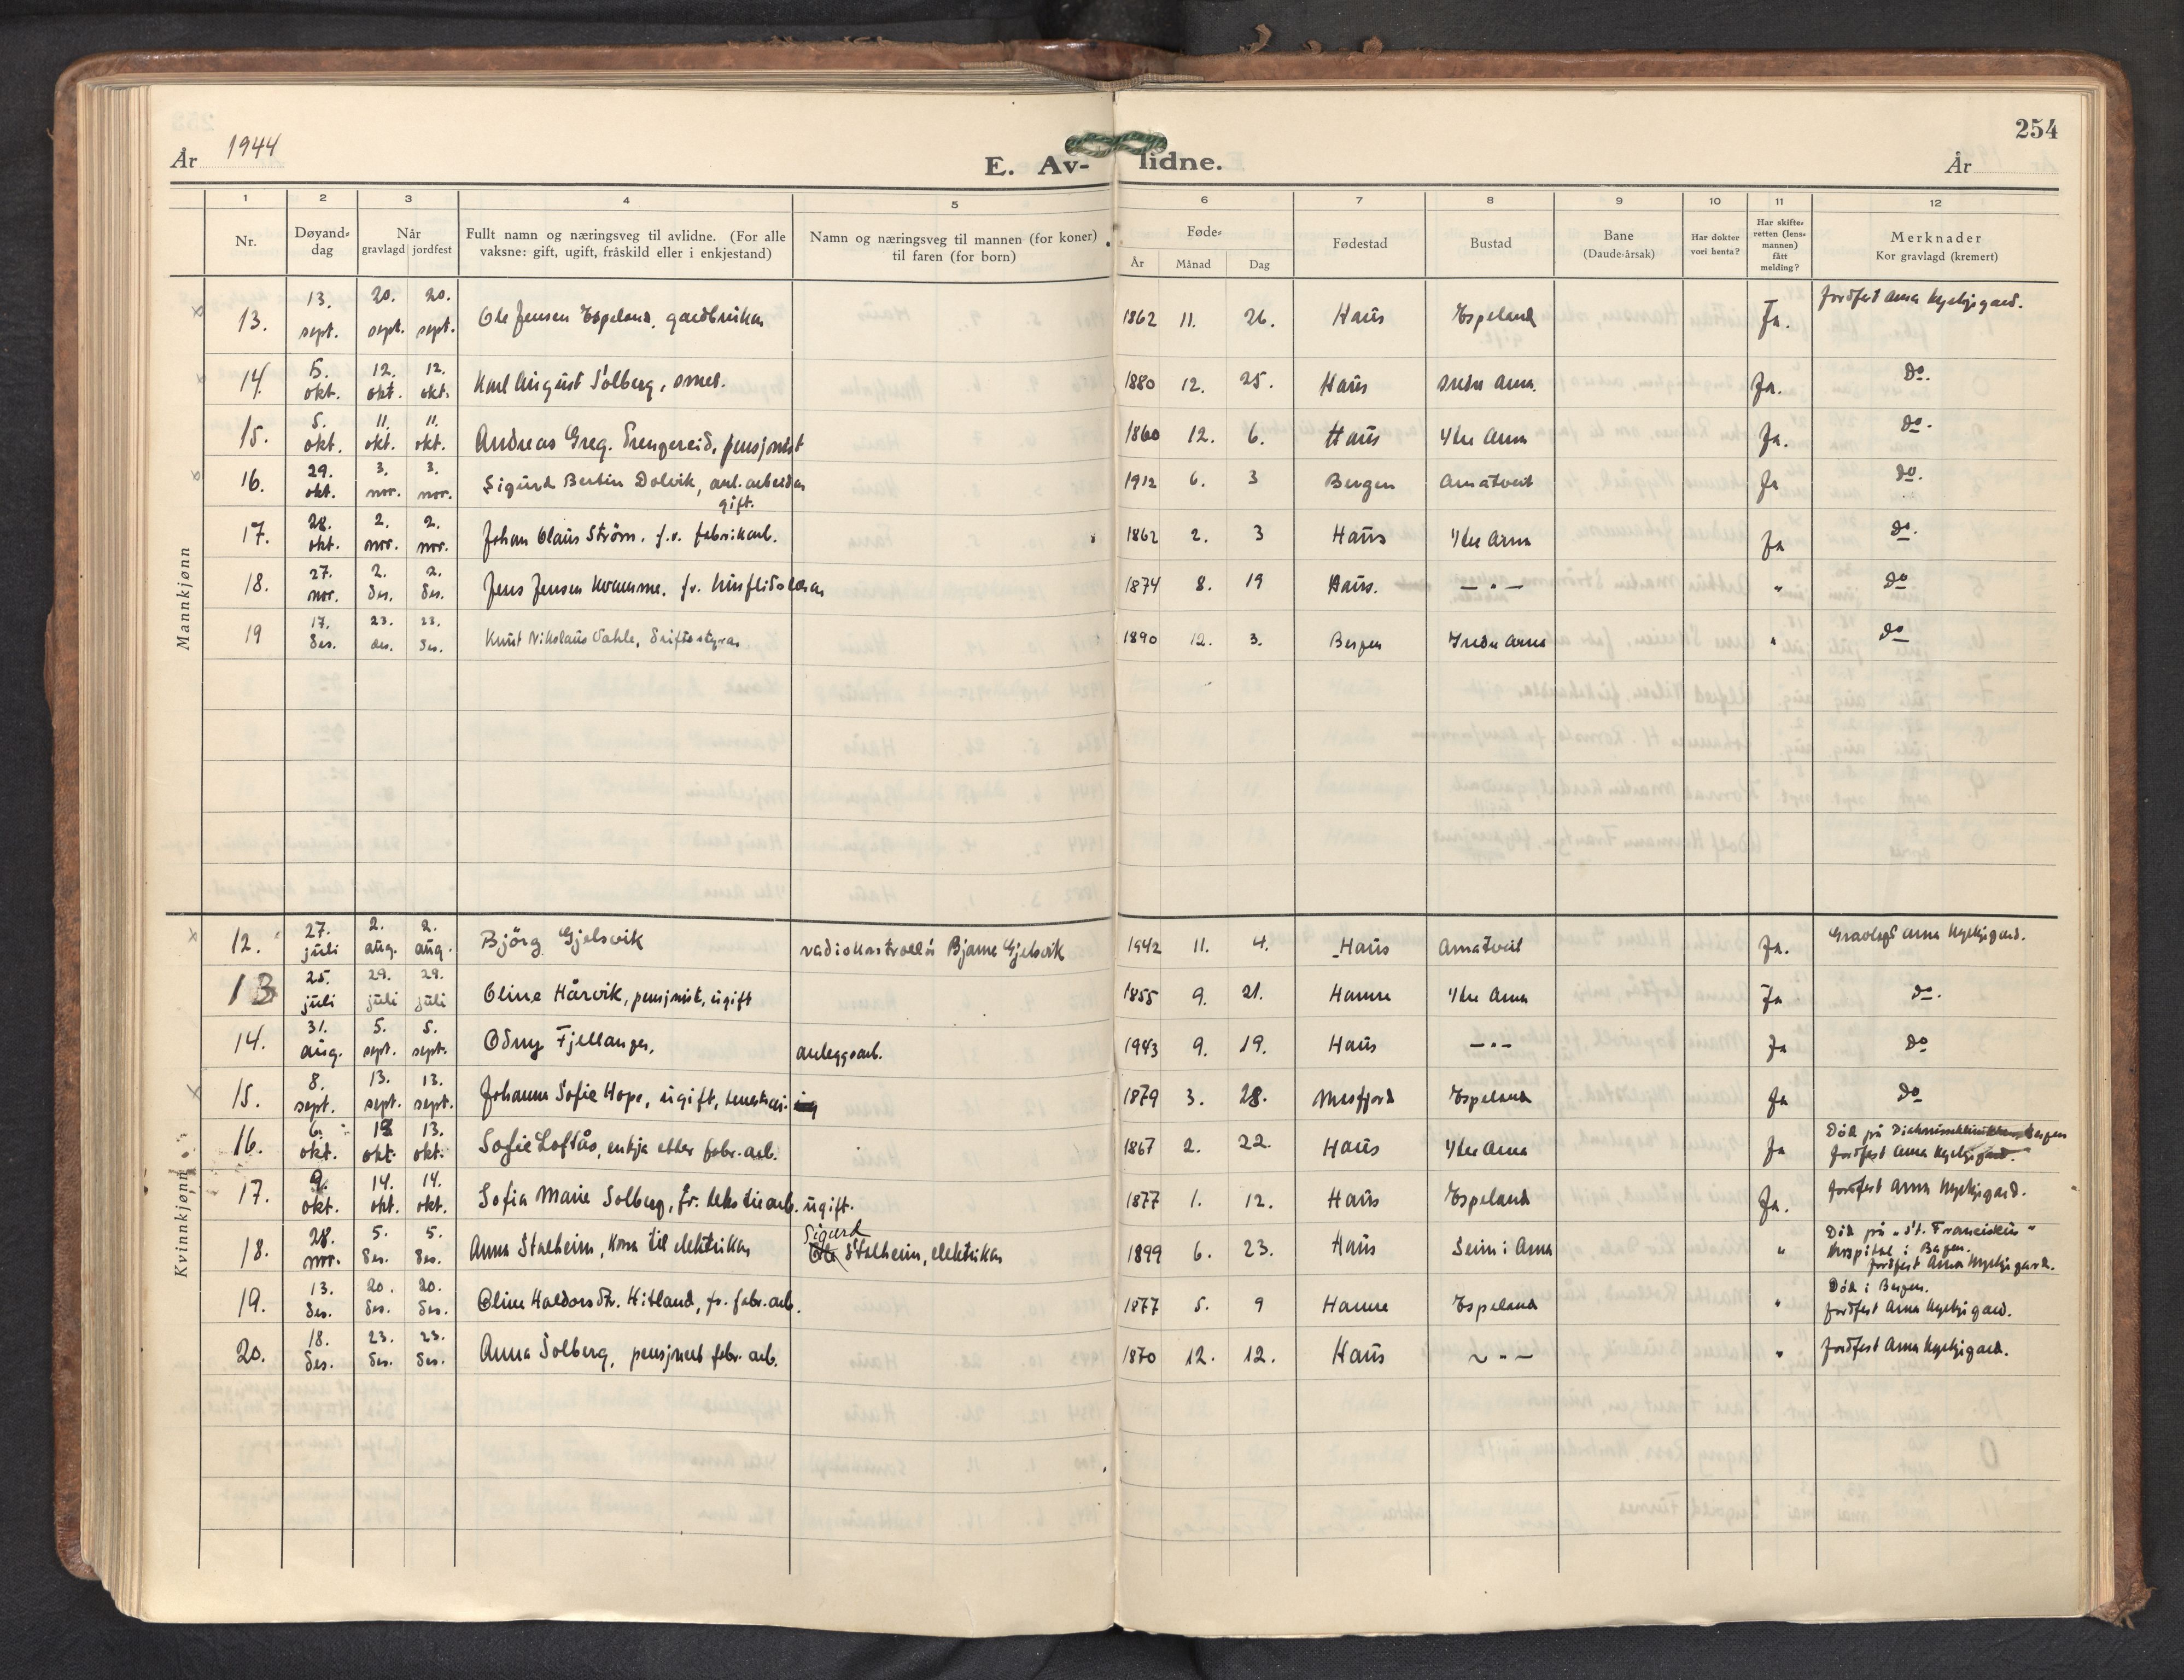 254
År 1944
E. Av- lidne.
År
1 2 3 4 5 6 7 8 9 10 11 12
Nr. Døyand-dag Når gravlagd jordfest Fullt namn og næringsveg til avlidne. (For alle vaksne: gift, ugift, fråskild eller i enkjestand) Namn og næringsveg til mannen (for koner) til faren (for born) Føde- År Månad Dag Fødestad Bustad Bane (Daude-årsak) Har dokter vori henta? Har skifte-retten (lens-mannen) fått melding? Merknader Kor gravlagd (kremert)
Mannkjønn
13. 13. sept. 20. sept. 20. sept. Ole Jensen Espeland, gardbrukar 1862 11. 26. Haus Espeland Ja. Jordfest Arna kyrkjegard.
14. 5. okt. 12. okt. 12. okt. Karl August Solberg, smed. 1880 12. 25. Haus Indre Arna. Ja. do.
15. 5. okt. 11. okt. 11. okt. Andreas Greg. Trengereid, pensjonist 1860 12. 6. Haus Ytre Arna Ja. do.
16. 29. okt. 3. nov. 3. nov. Sigurd Bertin Dolvik, anl. arbeidar gift. 1912 6. 3 Bergen Arnatveit Ja do.
17. 28. okt. 2. nov. 2. nov. Johan Olaus Strøm, f.v. fabrikarb. 1862 2. 3 Haus Ytre Arna Ja do.
18. 27. nov. 2. des. 2. des. Jens Jensen fv. husflidslærar 1874 8. 19 Haus. — " — " do
19 17. des. 23. des. 23. des. Knut Nikolaus Dahle, driftsstyrar 1890 12. 3. Bergen Indre Arna " do
Kvinnkjønn
12. 27. juli 2. aug. 2. aug. Björg Gjelsvik radiokontrollør Bjarne Gjelsvik 1942 11. 4. Haus Arnatveit Ja. Gravlagd Arna kyrkjegard.
13 25. juli 29. juli 29. juli Oline Hårvik, pensjonist, ugift 1855 9. 21. Hamre Ytre Arna Ja do.
14. 31. aug. 5. sept. 5. sept. Odny Fjellanger, anleggsarb. 1943 9. 19. Haus — " — Ja do
15. 8. sept. 13. sept. 13. sept. Johanna Sofie Hope, ugift, 1879 3. 28. Masfjord Espeland Ja do
16. 6. okt. 13 okt. 13. okt. Sofie Loftås, enkja etter fabr. arb. 1867 2. 22. Haus Ytre Arna Ja Död på Bergen Jordfest Arna kyrkjegard.
17. 9. okt. 14. okt. 14. okt. Sofia Marie Solberg, fv. tekstilarb. ugift. 1877 1. 12. Haus Espeland Ja. Jordfest Arna kyrkjegard.
18. 28. nov. 5. des. 5. des. Anna Stalheim, kona til elektrikar Sigurd Stalheim, elektrikar 1899 6. 23. Haus Seim i Arna " Död på "St. Franciskus" Hospital i Bergen. Jordfest Arna kyrkjegard.
19. 13. des. 20. des. 20. des. Oline Haldorsdtr. Hitland, fv. fabr. arb. 1877 5. 9 Hamre Espeland " Död i Bergen. Jordfest Arna kyrkjegard.
20. 18. des. 23. des. 23. des. Anna Solberg, pensjonert fabr. arb. 1870 12. 12. Haus — " — " Jordfest Arna kyrkjegard.